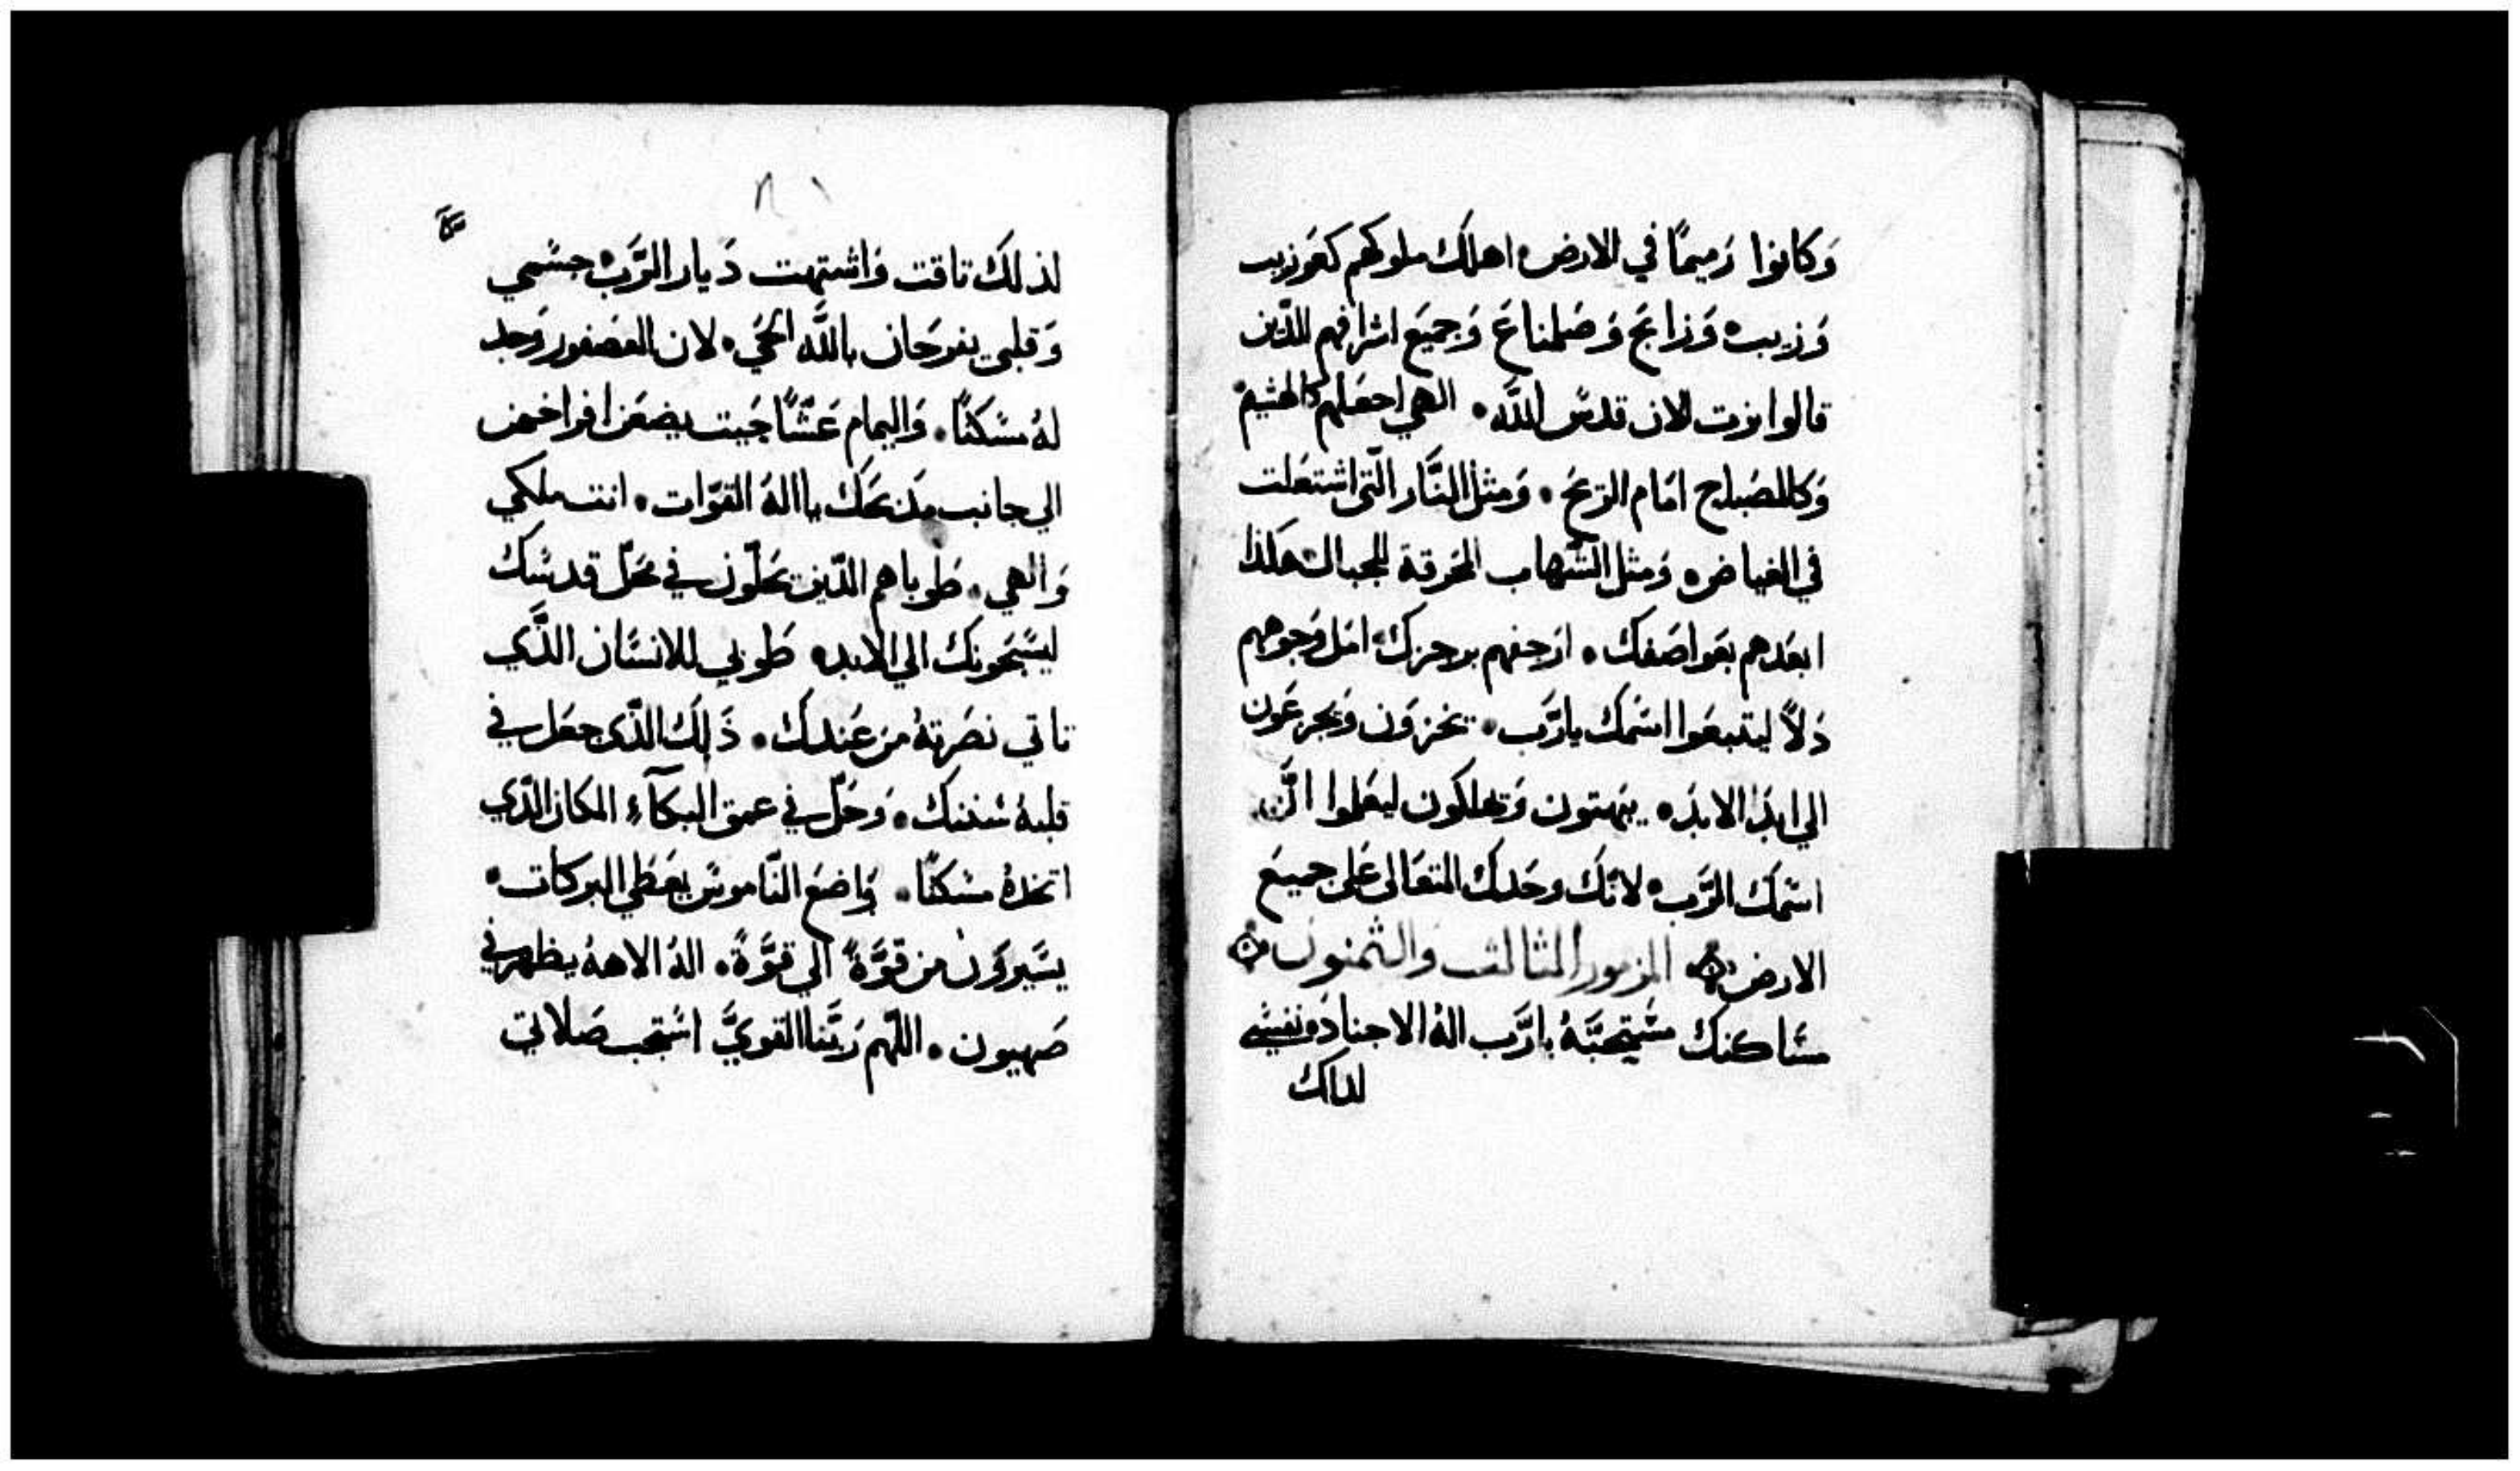 وَكانوا رَميمًا في الارض • اهلك ملوكهم كعَوزيب
وَزيب • وَزابَح وَصَلمناعَ وَجميَع اشرافهم الذّين
قالوا نرت الان قدسَ اللَّه • الهي اجعَلهم كالهشيم •
وَكالصَباح امَام الرّيَح • وَمثل النَّار الّتي اشتعَلت
في الغياض • وَمثل الشّهاب المحَرقة للجبال • هَكذا
ابعَدهم بعَواصَفك • ارَجفهم برجزك • امَل وَجوههم
ذلاً ليتبعَوا اسَمك يارَّب • يخزَون وَيجزعَون
الي ابدَ الابدَ • ينهتون وَيهلكون ليعَلموا انّ
اسَمَك الرَّب • لانّك وحَدك المتعَالى عَلى جميعَ
الارض • المزمور الثالث والثمنون
مسَاكنك مسَتحَبَّهُ يارَّب الهُ الاجنادَ • نفسَي
لذلك
لذلكَ تاقت وَاشتهت دَيار الرَّب • جسَمي
وَقلبي يفرحَان باللَّه الحَي • لان العصَفور وَجد
لهُ مسَكنًا • وَاليمام عَشًا حَيت يضعَن افراخهن
الي جانب مذبحَك يا الهُ القوّات • انت ملكي
وَالهي • طوباهم الذّين يحَلّون في محَلّ قدسَك
ليسَبّحَونك الي الابد • طَوبي للانسَان الذَّي
تاتي نصَرتهُ من عَندك • ذَلكَ الذّي جعَل في
قلبهُ سَننك • وَحَلّ في عمق البكآء المكَان الذّي
اتخذهُ مسَكنًا • وَاضعَ النّاموسَ يعَطَي البركات •
يسَيروَن من قوَّةً الي قوَّةً • الهُ الالهة يظهر في
صَهيون • اللّهم رَبَّنا القويَّ اسَتجب صَلاتي